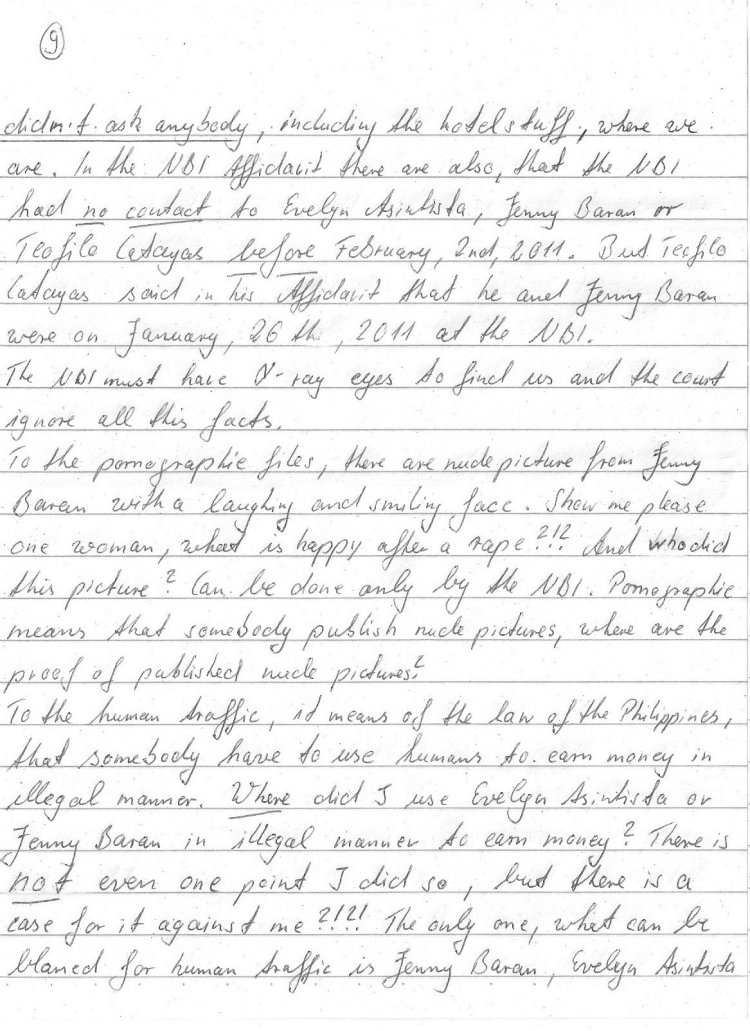 9
didn't ask anybody, including the hotelstuff, where we
are. In the NBI Affidavit there are also, that the NBI
had no contact to Evelyn Asintista, Jenny Baran or
Teofilo Catayas before February, 2nd, 2011. But Teofilo
Catayas said in his Affidavit that he and Jenny Baran
were on January, 26 th, 2011 at the NBI.
The NBI must have X-ray eyes to find us and the court
ignore all this facts.
To the pornographie files, there are nude picture from Jenny
Baran with a laughing and smiling face. Show me please
one woman, what is happy after a rape?!? And who did
this picture? Can be done only by the NBI. Pornographie
means that somebody publish nude pictures, where are the
proof of published nude pictures?
To the human traffic, it means of the law of the Philippines,
that somebody have to use humans to earn money in
illegal manner. Where did I use Evelyn Asintista or
Jenny Baran in illegal manner to earn money? There is
not even one point I did so, but there is a
case for it against me?!?! The only one, what can be
blamed for human traffic is Jenny Baran, Evelyn Asintista